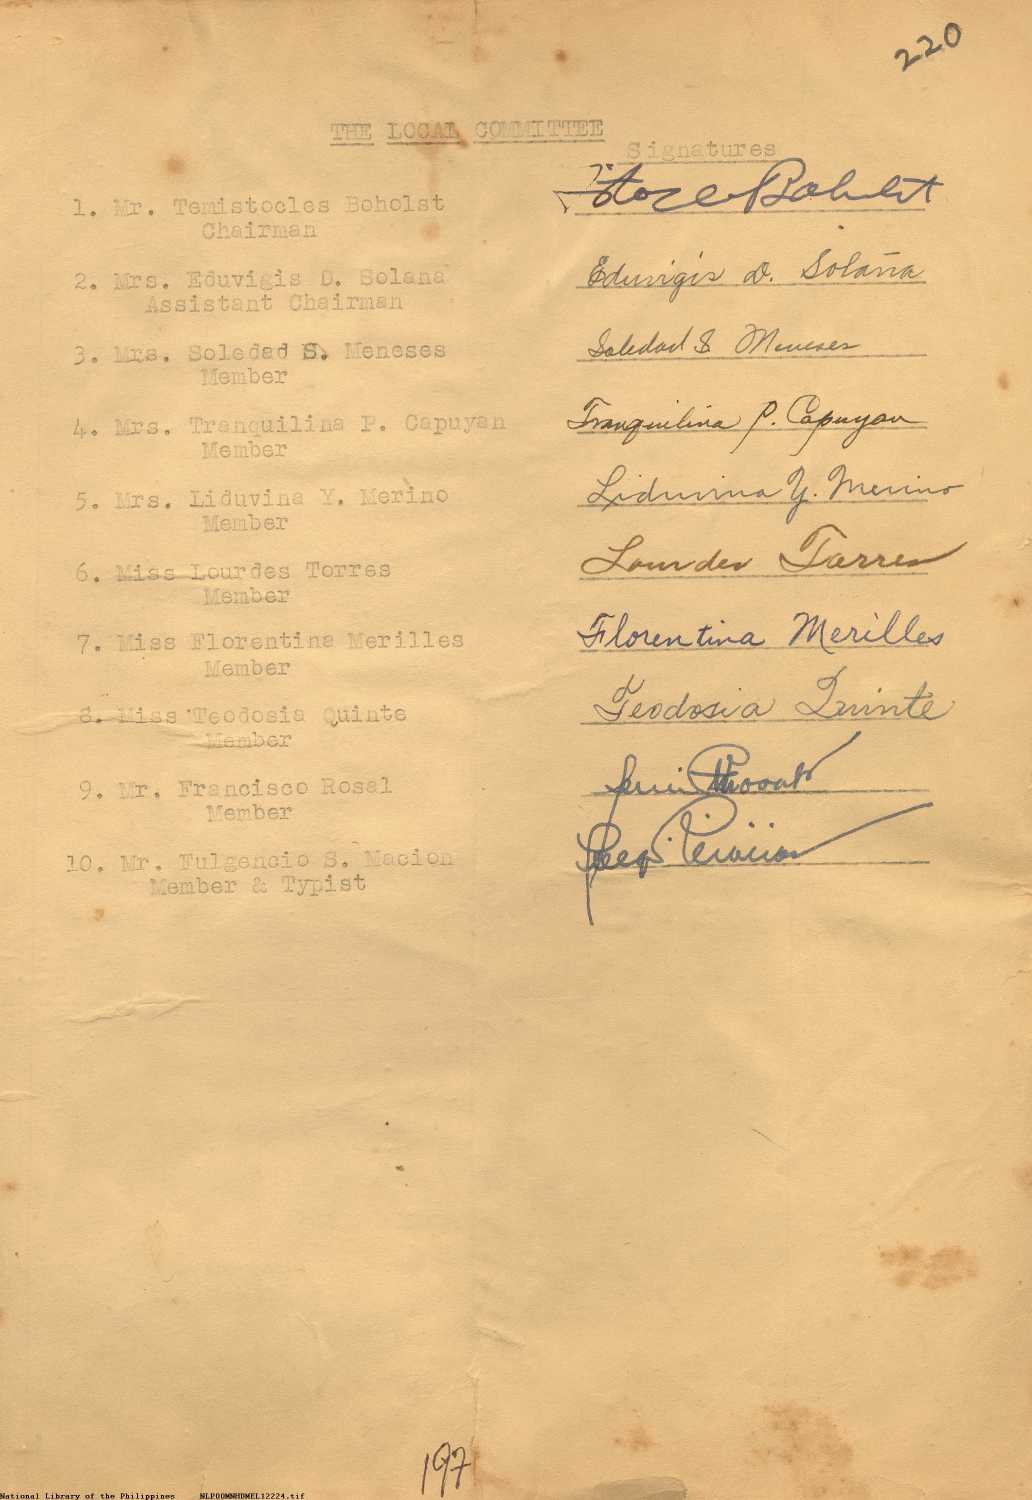 220
THE LOCAL COMMITTEE
Signatures
1. Mr. Temistocles Boholst
Chairman
2. Mrs. Eduvigis D. Solana Eduvigis D. Solaña
Assistant Chairman
3. Mrs. Soledad S. Meneses Soledad S Meneses
Member
4. Mrs. Tranquilina P. Capuyan Tranquilina P. Capuyan
Member
5. Mrs. Liduvina Y. Merino Liduvina Y. Merino
Member
6. Miss Lourdes Torres Lourdes Torres
Member
7. Miss Florentina Merilles Florentina Merilles
Member
8. Miss Teodosia Quinte Teodosia Quinte
Member
9. Mr. Francisco Rosal
Member
10. Mr. Fulgencio S. Macion
Member & Typist
197
National Library of the Philippines NLPOOMNHDMEL12224.tif